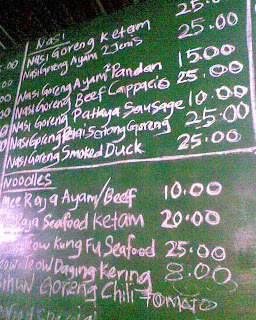 Nasi 25.00
Nasi Goreng Ketam 25.00
Nasi Goreng Ayam 2 Jenis
Nasi Goreng Ayam Pandan 15.00
Nasi Goreng Beef Cappacio 25.00
Nasi Goreng Pattaya Sausage 10.00
Nasi Goreng Petai Sotong Goreng 25.00
Nasi Goreng Smoked Duck 25.00
Noodles
Mee Raja Ayam/Beef 10.00
Raja Seafood Ketam 20.00
Kung Fu Seafood 25.00
Daging Kering 8.00
Goreng Chili Tomato